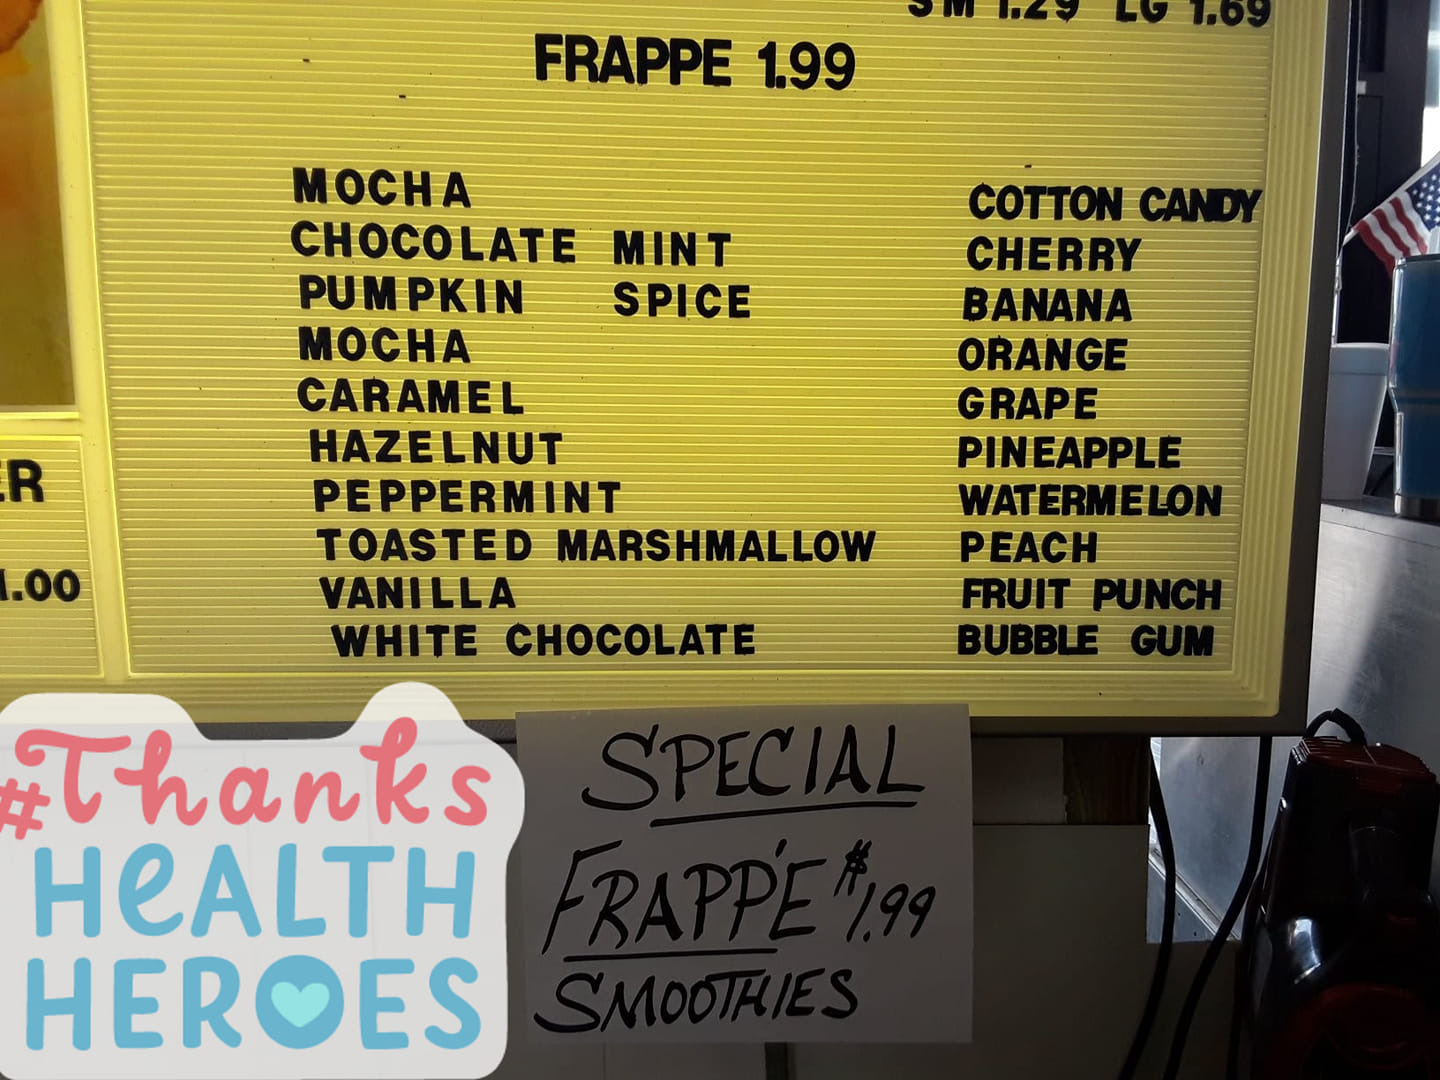 SM 1.29 LG 1.69
FRAPPE 1.99
MOCHA
CHOCOLATE MINT
PUMPKIN SPICE
MOCHA
CARAMEL
HAZELNUT
PEPPERMINT
TOASTED MARSHMALLOW
VANILLA
WHITE CHOCOLATE
COTTON CANDY
CHERRY
BANANA
ORANGE
GRAPE
PINEAPPLE
WATERMELON
PEACH
FRUIT PUNCH
BUBBLE GUM
SPECIAL
FRAPP'E $1.99
SMOOTHIES
#Thanks
HEALTH
HEROES